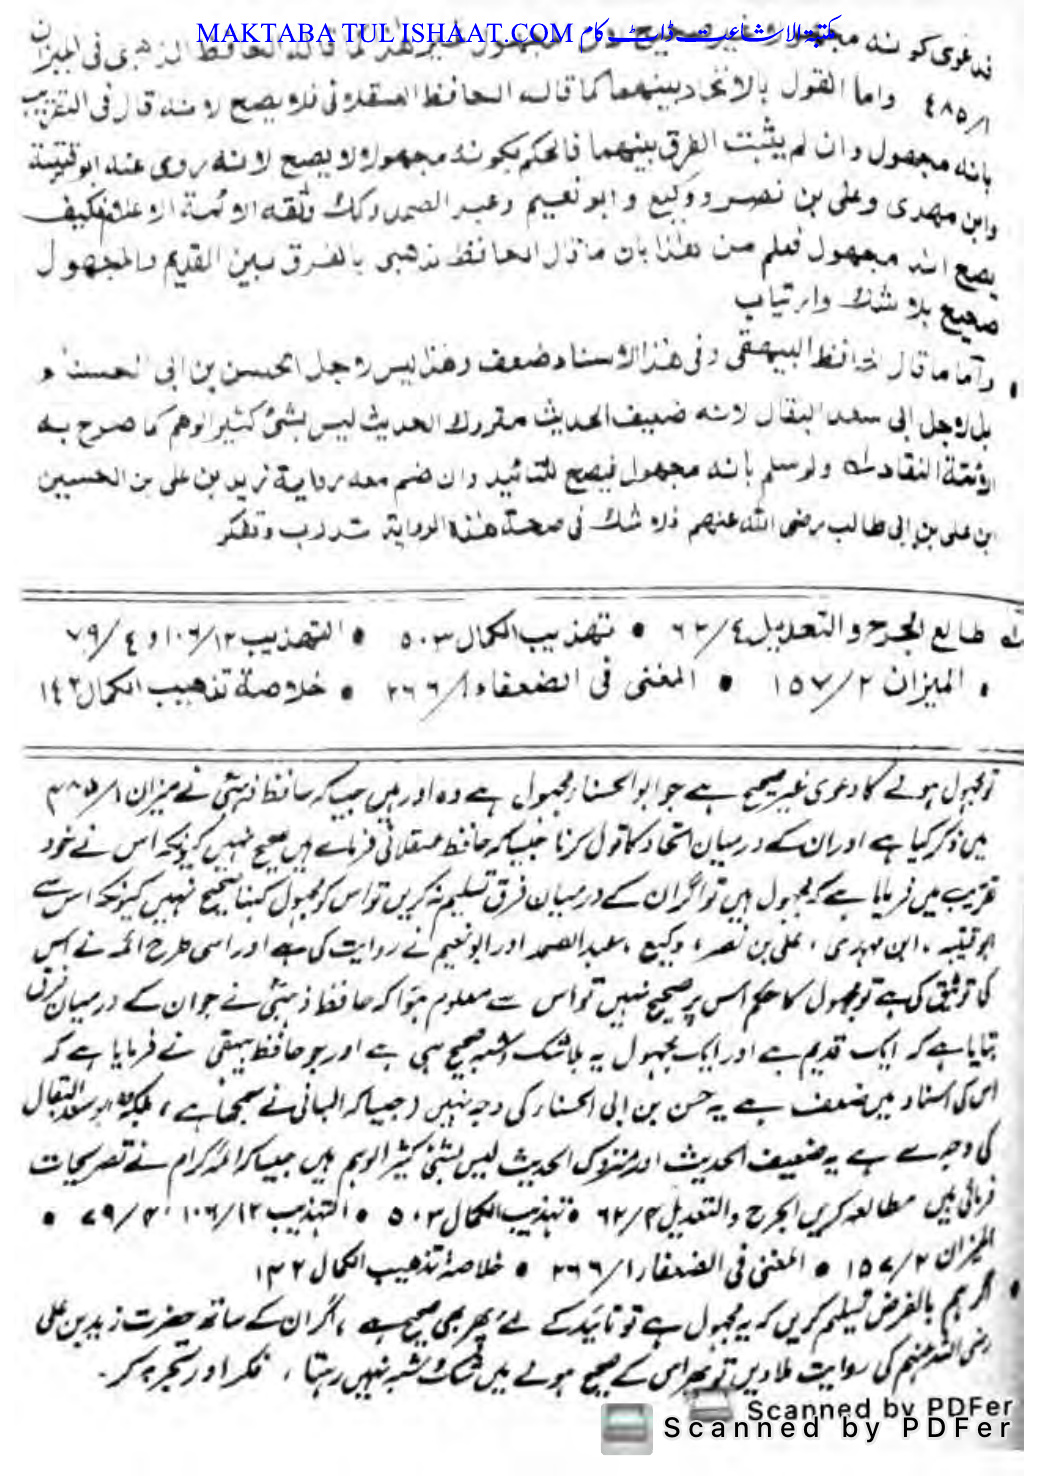 MAKTABA TUL ISHAAT.COM مکتبۃ الاشاعت ڈاٹ کام
فدعوى كونه غير صحيح لما قاله الحافظ الذهبي في الميزان
١/٤٨٥ واما القول بالاتحاد بينهما كما قاله الحافظ العسقلاني فلا يصح لانه قال في التقريب
بانه مجهول وان لم يثبت الفرق بينهما فالحكم بكونه مجهولا لا يصح لانه روى عنه ابو قتيبة
وابن مهدى وعلى بن نصر ووكيع وابو نعيم وعبد الصمد وكذلك وثقه الائمة الاعلام فكيف
يصح انه مجهول فعلم من هذا بان ما قال الحافظ ذهبى بالفرق بين القديم والمجهول
صحيح بلا شك وارتياب
• وأما ما قال الحافظ البيهقى وفى هذا الاسناد ضعف وهذا ليس لاجل الحسن بن ابى الحسناء
بل لاجل ابى سعد البقال لانه ضعيف الحديث متروك الحديث ليس بشئ كثير الوهم كما صرح به
الائمة النقاد له ولو سلم بانه مجهول فيصح للتائيد وان ضم معه برواية زيد بن على بن الحسين
بن على بن ابى طالب رضى الله عنهم فلا شك فى صحة هذه الرواية تدرب وتفكر
له طالع الجرح والتعديل ٤/٦٢ • تهذيب الكمال ٥٠٣ • التهذيب ١٠٦/١٢ و ٤/٧٩
• الميزان ٢/١٥٧ • المغنى فى الضعفاء ١/٢٦٦ • خلاصة تذهيب الكمال ١٤٢
تو مجہول ہونے کا دعوی غیر صحیح ہے جو ابو الحسناء مجہول ہے وہ اور ہیں جیسا کہ حافظ ذہبیؒ نے میزان ۱/۴۸۵
میں ذکر کیا ہے اور ان کے درمیان اتحاد کا قول کرنا جیسا کہ حافظ عسقلانی فرماتے ہیں صحیح نہیں کیونکہ اس نے خود
تقریب میں فرمایا ہے کہ مجہول ہیں تو اگر ان کے درمیان فرق تسلیم نہ کریں تو اس کو مجہول کہنا صحیح نہیں کیونکہ اس سے
ابو قتیبہ ، ابن مہدی ، علی بن نصر ، وکیع ، عبد الصمد اور ابو نعیم نے روایت کی ہے اور اسی طرح ائمہ نے اس
کی توثیق کی ہے تو مجہول کا حکم اس پر صحیح نہیں تو اس سے معلوم ہوا کہ حافظ ذہبیؒ نے جو ان کے درمیان فرق
بتایا ہے کہ ایک قدیم ہے اور ایک مجہول یہ بلا شک و شبہ صحیح ہی ہے اور جو حافظ بیہقی نے فرمایا ہے کہ
اس کی اسناد میں ضعف ہے یہ حسن بن ابی الحسناء کی وجہ نہیں (جیسا کہ البانی نے سمجھا ہے ، بلکہ ابو سعد البقال
کی وجہ سے ہے یہ ضعیف الحدیث اور متروک الحدیث لیس بشئ کثیر الوہم ہیں جیسا کہ ائمہ کرام نے تصریحات
فرمائی ہیں مطالعہ کریں الجرح والتعدیل ۴/۶۲ • تہذیب الکمال ۵۰۳ • التہذیب ۱۰۶/۱۲ ، ۴/۷۹ •
المیزان ۲/۱۵۷ • المغنی فی الضعفاء ۱/۲۶۶ • خلاصۃ تذہیب الکمال ۱۴۲
• اگر ہم بالفرض تسلیم کریں کہ یہ مجہول ہے تو تائید کے لئے پھر بھی صحیح ہے ، اگر ان کے ساتھ حضرت زید بن علی
رضی اللہ عنہم کی روایت ملا دیں تو پھر اس کے صحیح ہونے میں شک و شبہ نہیں رہتا ، فکر اور تجربہ کر ۔
Scanned by PDFer
Scanned by PDFer